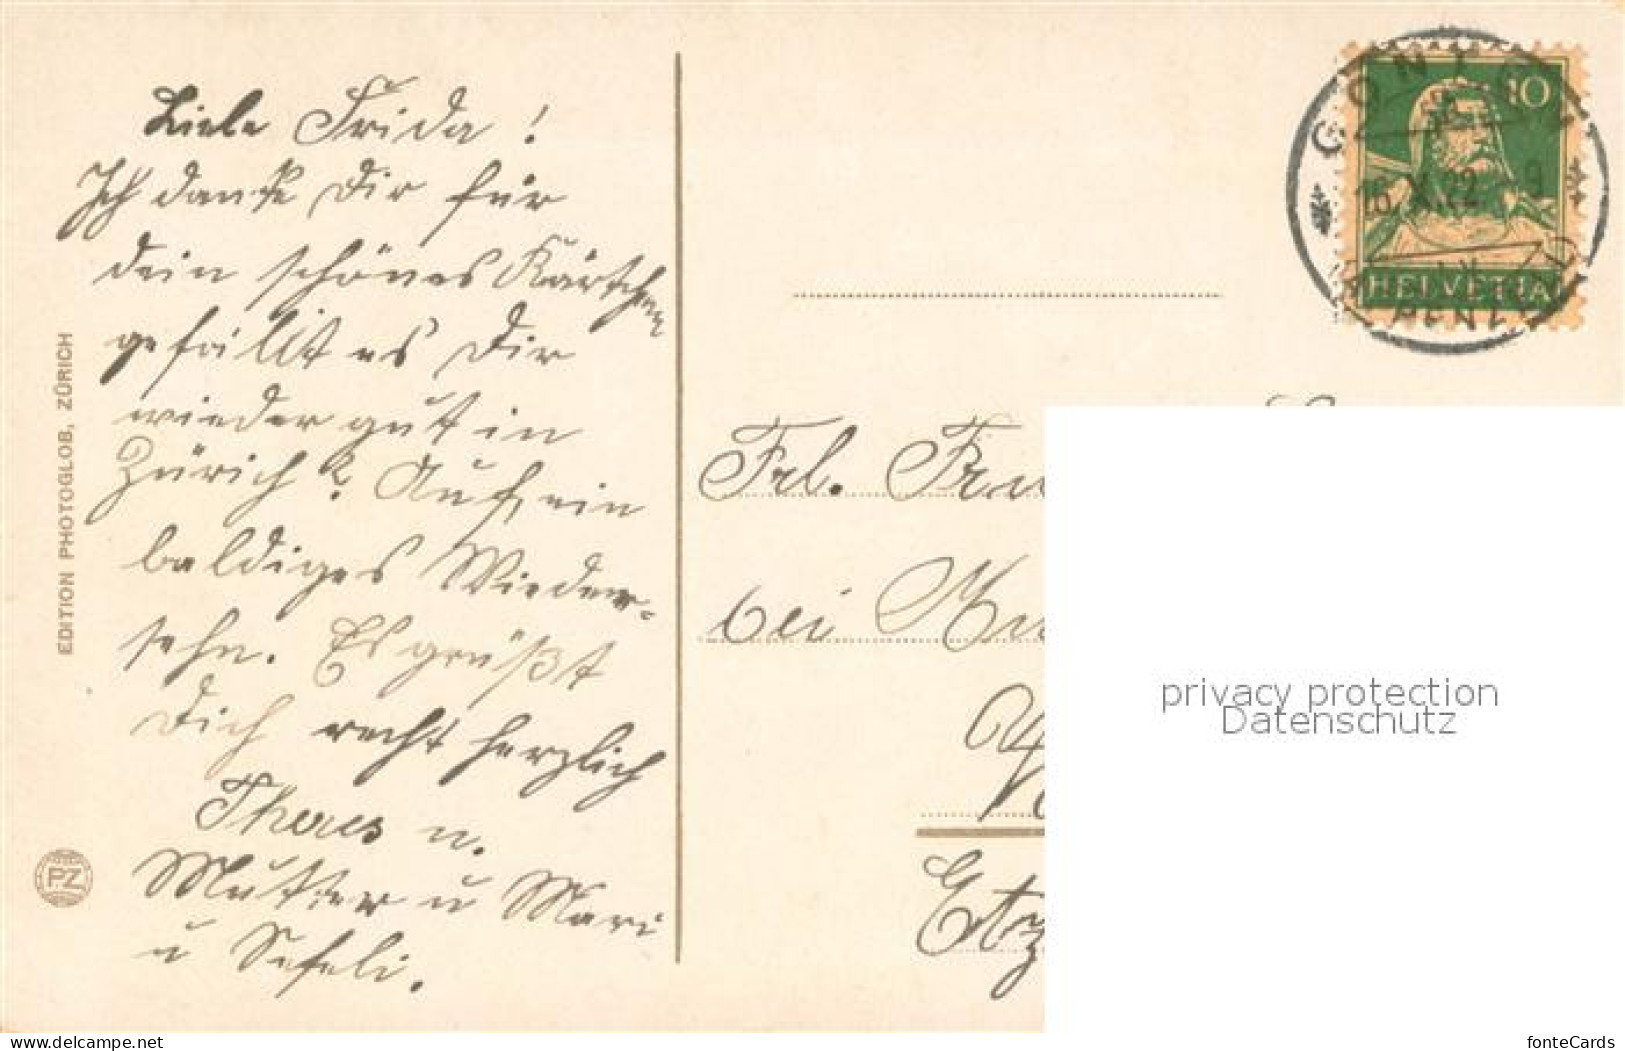 Liebe Frida !
Ich danke Dir für
dein schönes Kärtchen
gefällt es Dir
wieder gut in
Zürich? Auf, ein
baldiges Wieder=
sehn. Es grüßt
Dich recht herzlich
Theres u.
Mutter u Mari
u Sefeli.
EDITION PHOTOGLOB, ZÜRICH
PZ
10
HELVETIA
GONTEN
16.X.22. 9
Frl.
bei
privacy protection
Datenschutz
www.delcampe.net
fonteCards